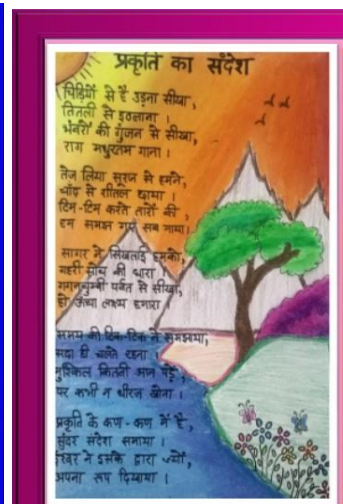 प्रकृति का संदेश
चिड़ियों से है उड़ना सीखा,
तितली से इठलाना।
भंवरों की गुंजन से सीखा,
राग मधुरतम गाना।
तेज लिया सूरज से हमने,
चाँद से शीतल छाया।
टिम-टिम करते तारों की,
हम समझ गए सब माया।
सागर ने सिखलाई हमको,
गहरी सोच की धारा।
गगनचुम्बी पर्वत से सीखा,
हो ऊंचा लक्ष्य हमारा
समय की टिक-टिक ने समझाया,
सदा ही चलते रहना।
मुश्किल कितनी आन पड़े,
पर कभी न धीरज खोना।
प्रकृति के कण-कण में है,
सुंदर संदेश समाया।
ईश्वर ने इसके द्वारा ज्यों,
अपना रूप दिखाया।